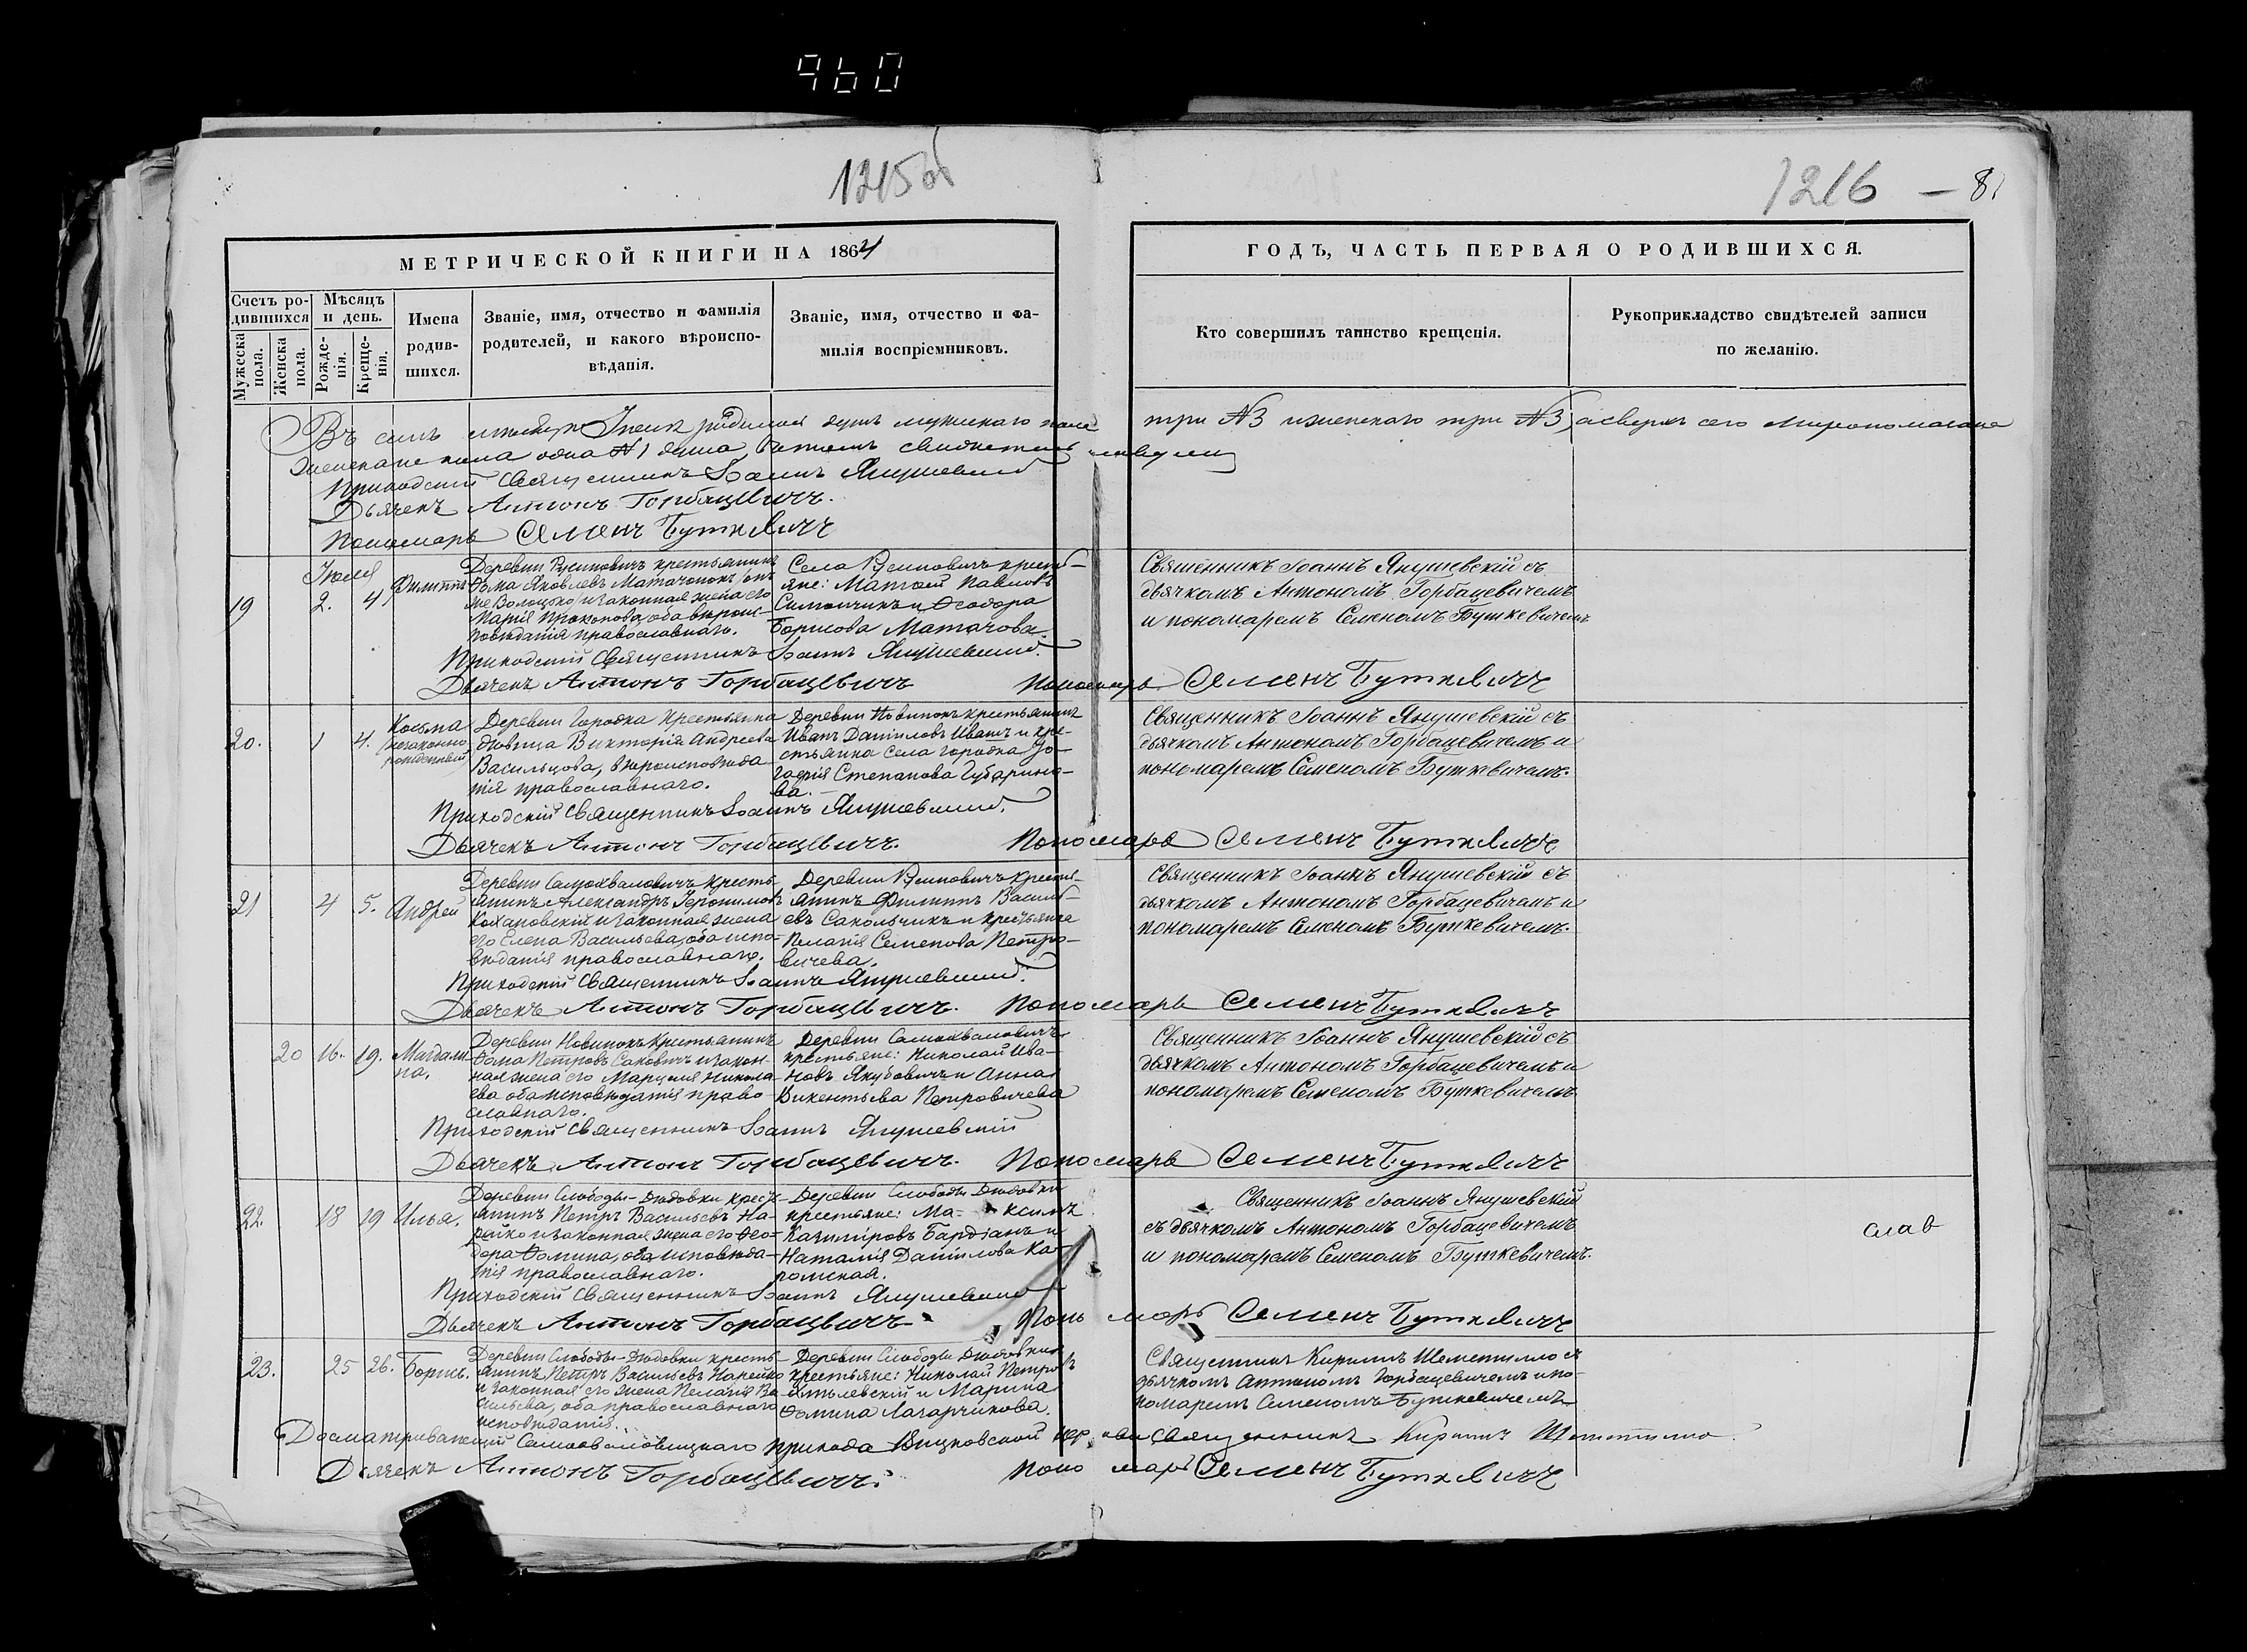 960
1215об
1216 — 8
МЕТРИЧЕСКОЙ КНИГИ НА 1864
ГОДЪ, ЧАСТЬ ПЕРВАЯ О РОДИВШИХСЯ.
Счетъ ро-
дившихся
Мужеска
пола.
Женска
пола.
Мѣсяцъ
и день.
Рожде-
нія.
Креще-
нія.
Имена
родив-
шихся.
Званіе, имя, отчество и фамилія
родителей, и какого вѣроиспо-
вѣданія.
Званіе, имя, отчество и фа-
милія воспріемниковъ.
Кто совершилъ таинство крещенія.
Рукоприкладство свидѣтелей записи
по желанію.
Въ семъ мужескаго пола
три №3 и женскаго три №3, а сверхъ сего
пола одна №1 душа, въ томъ
Приходскій Священникъ Іоаннъ Янушевскій
Дьячекъ Антонъ Горбацевичъ.
Пономарь Семенъ Буткевичъ
Іюля
19
2.
4
Филиппъ
Деревни Русиновичъ крестьянинъ
Ѳома Яковлевъ Маточонокъ онъ
же Волоцько и законная жена его
Марія Прокопова, оба вѣроис-
повѣданія православнаго.
Села Русиновичъ кресть-
яне: Матѳей Павловъ
Симончикъ и Ѳеодора
Борисова Маточова.
Священникъ Іоаннъ Янушевскій съ
дьячкомъ Антономъ Горбацевичемъ
и пономаремъ Семеномъ Буткевичемъ
Приходскій Священникъ Іоаннъ Янушевскій.
Дьячекъ Антонъ Горбацевичъ Пономарь Семенъ Буткевичъ
20.
1
4.
Косьма
(незаконно
рожденный)
Деревни Городка крестьянка
дѣвица Викторія Андреева
Васильцова, вѣроисповѣда-
нія православнаго.
Деревни Новинокъ крестьянинъ
Иванъ Даніиловъ Ивашъ и кре-
стьянка Села Городка
Степанова Губарино-
ва.
Священникъ Іоаннъ Янушевскій съ
дьячкомъ Антономъ Горбацевичемъ и
пономаремъ Семеномъ Буткевичемъ.
Приходскій Священникъ Іоаннъ Янушевскій.
Дьячекъ Антонъ Горбацевичъ. Пономарь Семенъ Буткевичъ
21
4
5.
Андрей
Деревни Самохваловичъ кресть-
янинъ Александръ Іеронимовъ
Кохановскій и законная жена
его Елена Васильева, оба испо-
вѣданія православнаго.
Деревни Русиновичъ кресть-
янинъ Филиппъ Василь-
евъ Сакольчикъ и крестьянка
Пелагія Семенова Петро-
вичева.
Священникъ Іоаннъ Янушевскій съ
дьячкомъ Антономъ Горбацевичемъ и
пономаремъ Семеномъ Буткевичемъ.
Приходскій Священникъ Іоаннъ Янушевскій.
Дьячекъ Антонъ Горбацевичъ. Пономарь Семенъ Буткевичъ
20
16.
19.
Магдали-
на.
Деревни Новинокъ крестьянинъ
Ѳома Петровъ Саковичъ и закон-
ная жена его Марцеля Никола-
ева оба исповѣданія право-
славнаго.
Деревни Самохваловичъ
крестьяне: Николай Ива-
новъ Якубовичъ и Анна
Викентьева Петровичева
Священникъ Іоаннъ Янушевскій съ
дьячкомъ Антономъ Горбацевичемъ и
пономаремъ Семеномъ Буткевичемъ.
Приходскій Священникъ Іоаннъ Янушевскій
Дьячекъ Антонъ Горбацевичъ. Пономарь Семенъ Буткевичъ
22.
18
19
Илья.
Деревни Слободы-Дюдовки крест-
янинъ Петръ Васильевъ На-
рейко и законная жена его Ѳео-
дора Ѳомина, оба исповѣда-
нія православнаго.
Деревни Слободы Дюдовки
крестьяне: Ма- ксимъ
Казиміровъ Бардіанъ и
Наталія Даніилова Ка-
ромская.
Священникъ Іоаннъ Янушевскій
съ дьячкомъ Антономъ Горбацевичемъ
и пономаремъ Семеномъ Буткевичемъ.
слав
Приходскій Священникъ Іоаннъ Янушевскій
Дьячекъ Антонъ Горбацевичъ. Поно марь Семенъ Буткевичъ
23.
25
26.
Борисъ.
Деревни Слободы-Дюдовки кресть-
янинъ Петръ Васильевъ Нарейко
и законная его жена Пелагія Ва-
сильева, оба православнаго
исповѣданія.
Деревни Слободы Дюдовки
крестьяне: Николай Петровъ
и Марина
Ѳомина Лазарчикова.
Священникъ Кириллъ Шеметилло съ
дьячкомъ Антономъ Горбацевичемъ и по-
номаремъ Семеномъ Буткевичемъ
Досматривающій Самохваловицкаго прихода Вицковской церкви Священникъ Кириллъ Шеметилло.
Дьячекъ Антонъ Горбацевичъ. Поно марь Семенъ Буткевичъ